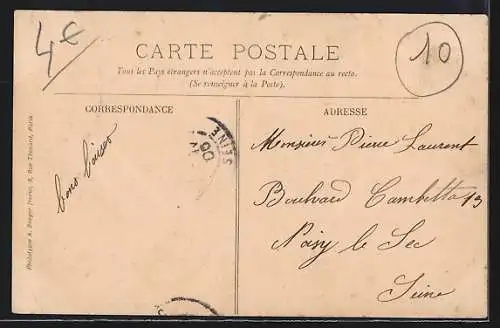 4€
10
CARTE POSTALE
Tous les Pays étrangers n'acceptent pas la Correspondance au recto.
(Se renseigner à la Poste).
CORRESPONDANCE
ADRESSE
bons baisers
SEINE
Monsieur Pierre Laurent
Boulvard Gambetta 13
Noisy le Sec
Seine
Phototypie A. Breger frères, 9, Rue Thénard, Paris